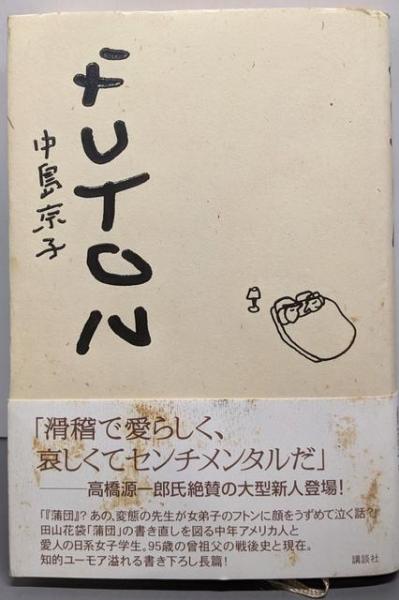 FUTON
中島京子
「滑稽で愛らしく、
哀しくてセンチメンタルだ」
――高橋源一郎氏絶賛の大型新人登場!
「『蒲団』?あの、変態の先生が女弟子のフトンに顔をうずめて泣く話?」
田山花袋「蒲団」の書き直しを図る中年アメリカ人と
愛人の日系女子学生。95歳の曾祖父の戦後史と現在。
知的ユーモア溢れる書き下ろし長篇!
講談社